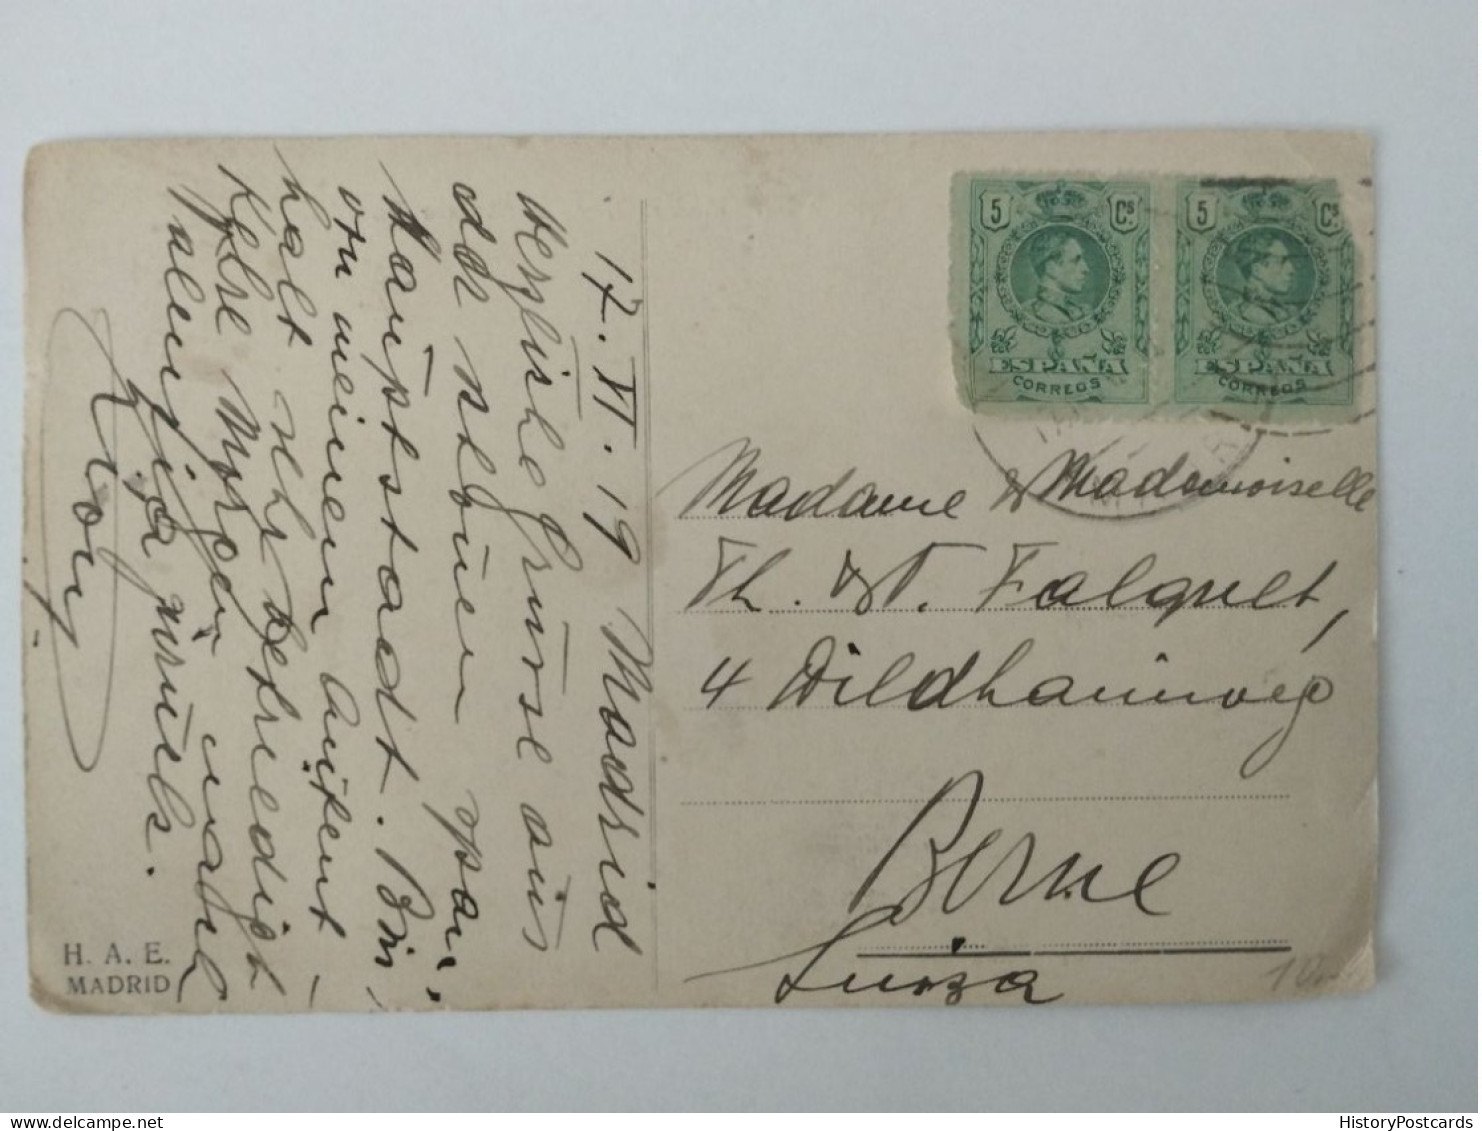 17. VI. 19 Madrid
Herzliche Grüsse aus
der schönen span.
Hauptstadt. Bin
von meinem Aufent-
halt sehr befriedigt
Kehre Morgen wieder
H. A. E.
MADRID
5 Cs
ESPAÑA
CORREOS
5 Cs
ESPAÑA
CORREOS
Madame & Mademoiselle
Th. & T. Falquet,
4 Wildhainweg
Berne
Suiza
10.-
HistoryPostcards.com